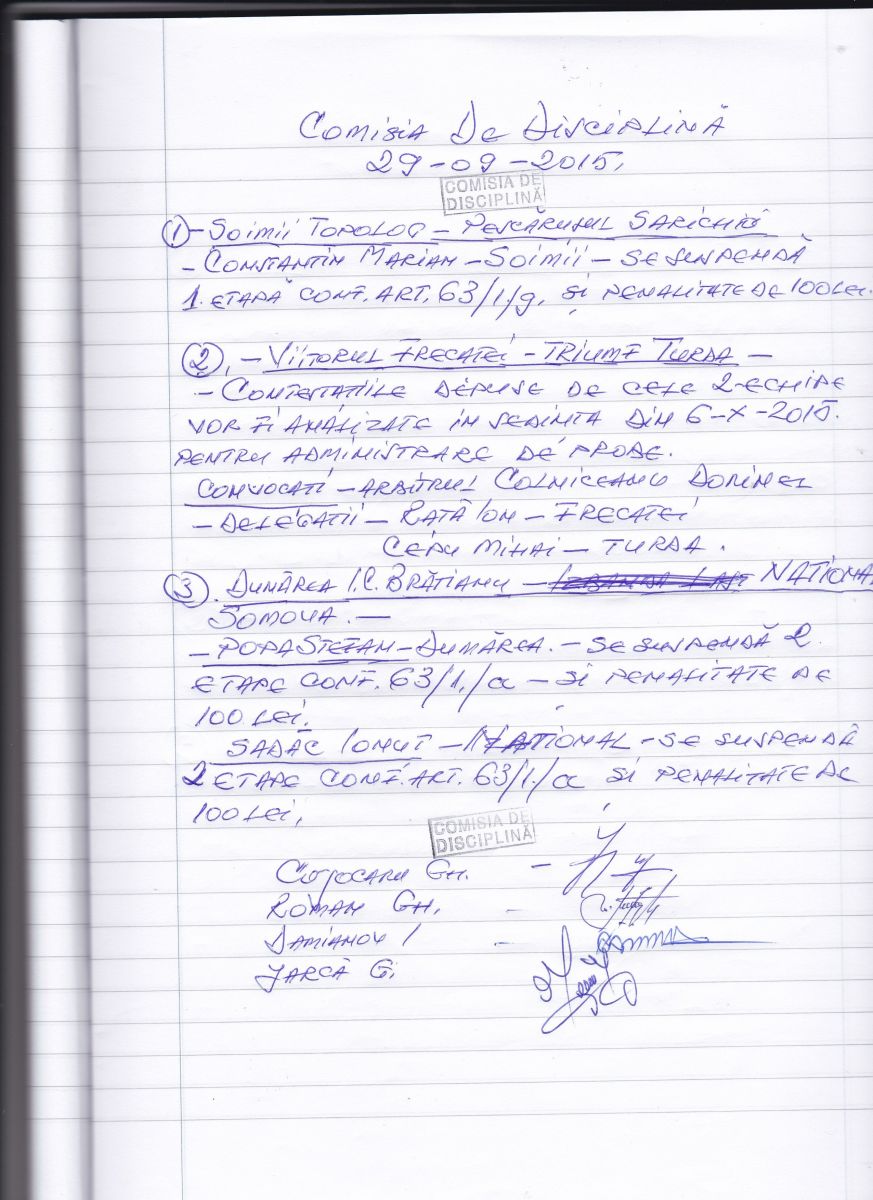 COMISIA DE DISCIPLINĂ
29-09-2015.
COMISIA DE
DISCIPLINĂ
1 - SOIMII TOPOLOG - PESCĂRUSUL SARICHIOI
- CONSTANTIN MARIAN - SOIMII - SE SUSPENDĂ
1. ETAPĂ CONF. ART. 63/1/g, SI PENALITATE DE 100 LEI.
2, - VIITORUL FRECATEI - TRIUMF TURDA -
- CONTESTATIILE DEPUSE DE CELE 2 ECHIPE
VOR FI ANALIZATE IN SEDINTA DIN 6-X-2015.
PENTRU ADMINISTRARE DE PROBE.
CONVOCATI - ARBITRUL COLNICEANU DORINEL
- DELEGATII - RATĂ ION - FRECATEI
CEPU MIHAI - TURDA.
3. DUNĂREA I.C. BRĂTIANU - NATIONAL
SOMOVA. -
- POPA STEFAN - DUNĂREA. - SE SUSPENDĂ 2
ETAPE CONF. 63/1,/a - SI PENALITATE DE
100 LEI.
SADÂC IONUT - NATIONAL - SE SUSPENDĂ
2 ETAPE CONF. ART. 63/1/a SI PENALITATE DE
100 LEI,
COMISIA DE
DISCIPLINĂ
COJOCARU GH. -
ROMAN GH. -
DAMIANOV I -
JARCĂ G.